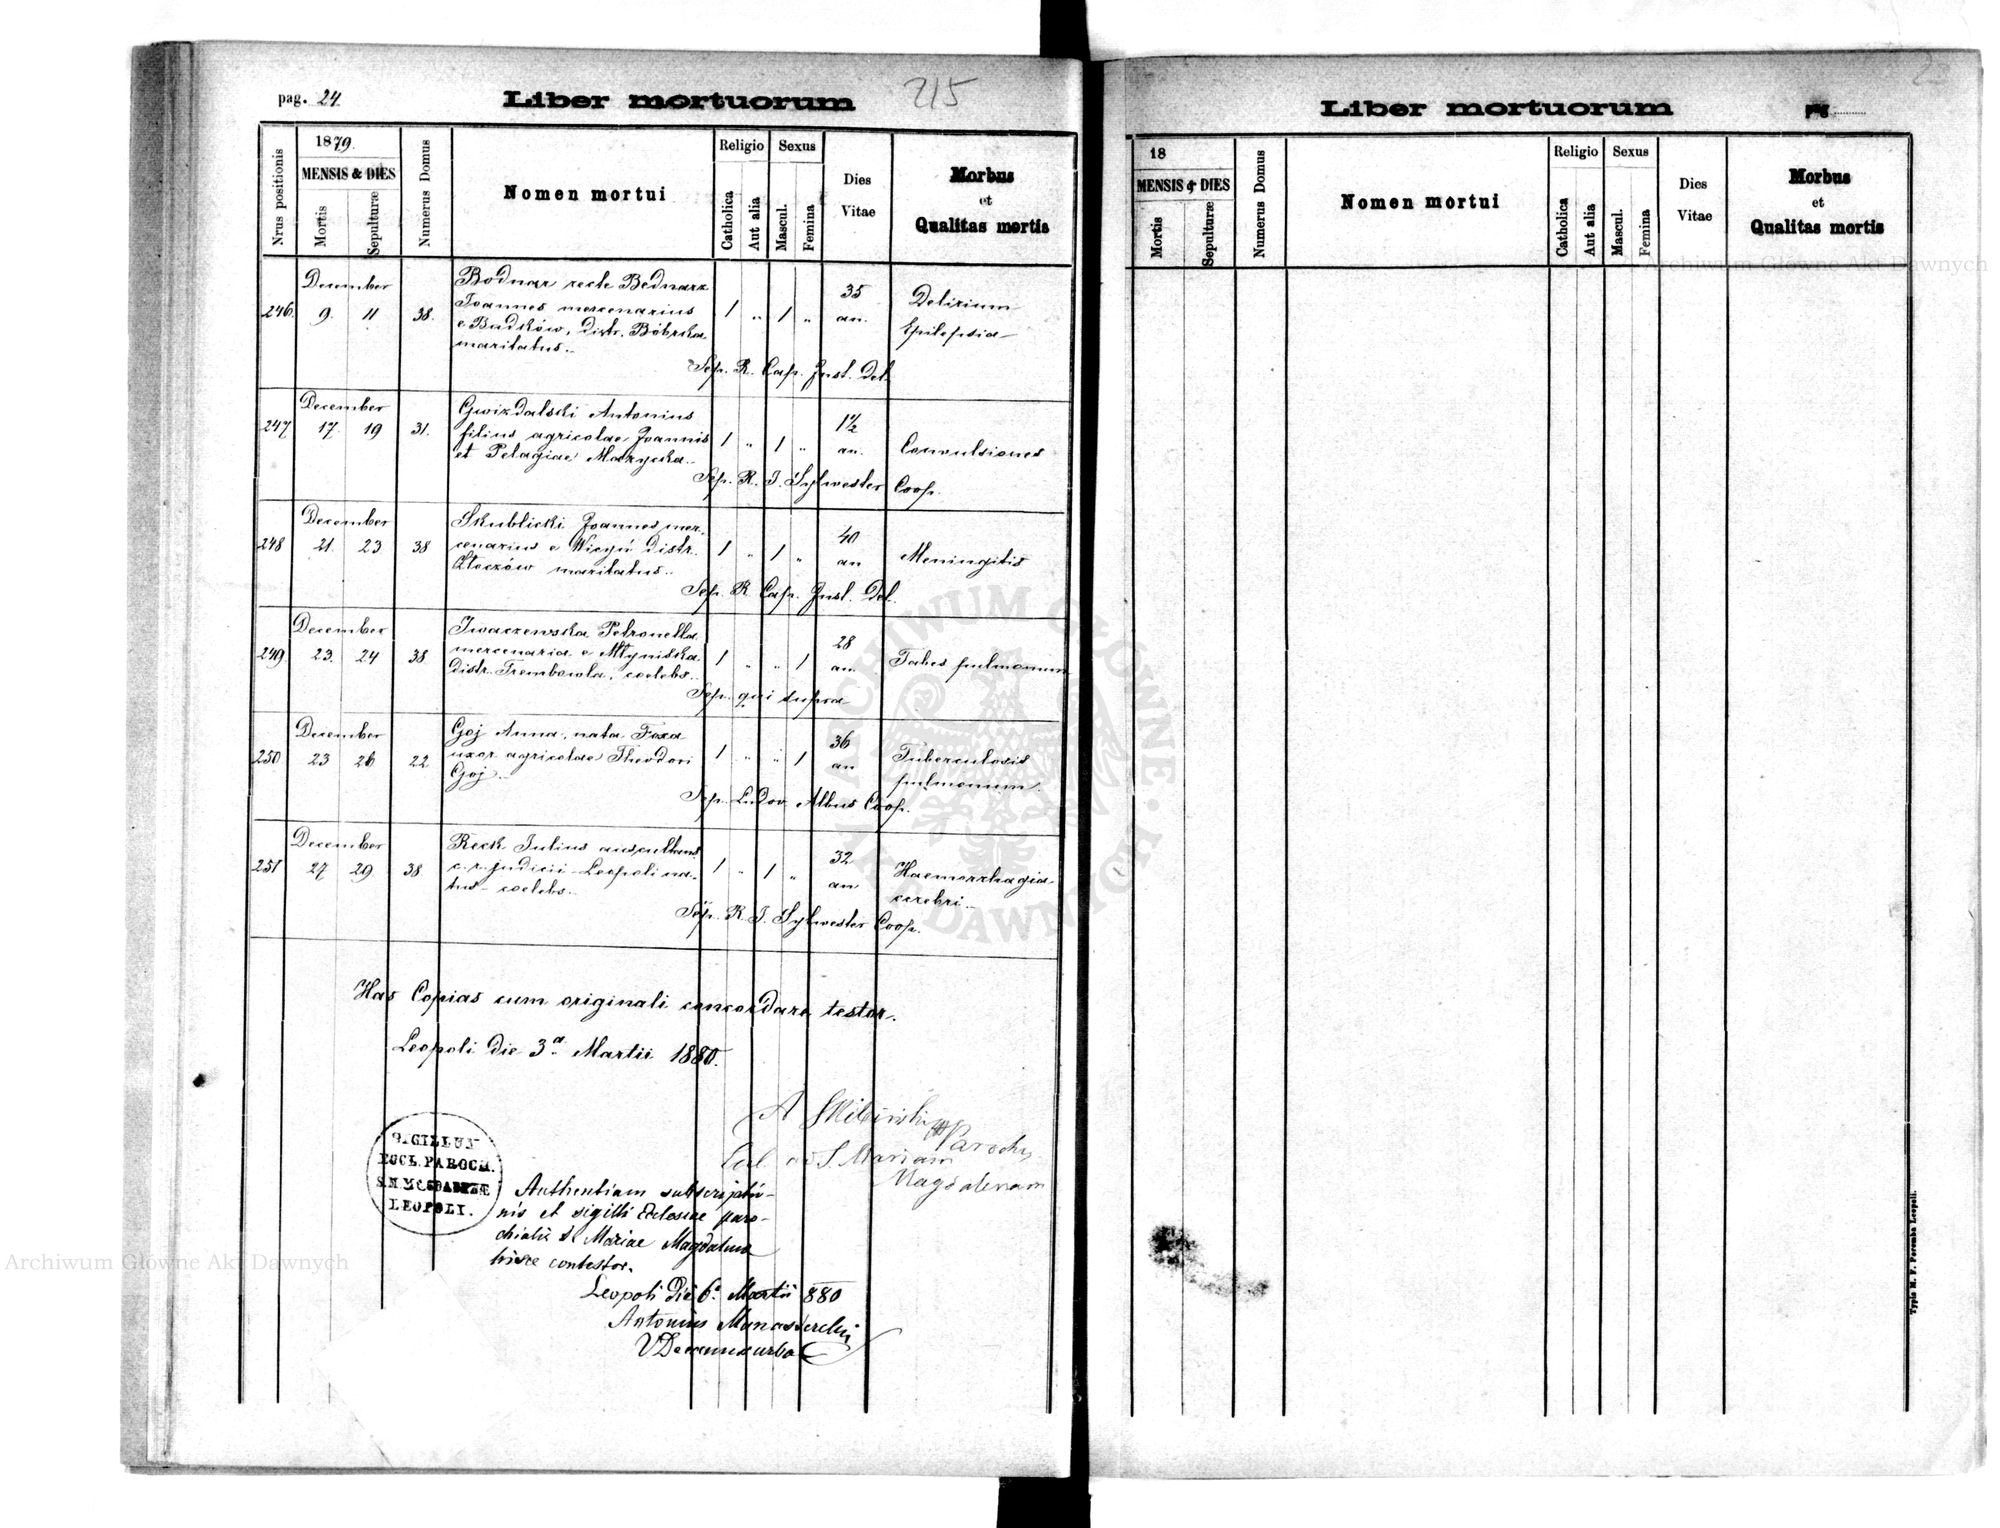 pag. 24
Liber mortuorum
215
Nrus positionis
1879.
MENSIS & DIES
Mortis
Sepulturæ
Numerus Domus
Nomen mortui
Religio
Catholica
Aut alia
Sexus
Mascul.
Femina
Dies
Vitae
Morbus
et
Qualitas mortis
December
246. 9. 11. 38.
Bodnar recte Bednarz
Joannes mercenarius
e Budków, distr. Bóbrka
maritatus.
1 " 1 "
35
an.
Delirium
Epilepsia
Sep. R. Cap. Inst. Del.
December
247 17. 19 31.
Gwizdalski Antonius
filius agricolae Joannis
et Pelagiae Mazycka.
1 " 1 "
1 1/2
an.
Convulsiones
Sep. R. J. Sylwester Coop.
December
248 21. 23 38
Skublicki Joannes mer-
cenarius e Wicyń distr.
Złoczów maritatus.
1 " 1 "
40
an
Meningitis
Sep. R. Cap. Inst. Del.
December
249. 23. 24 38
Iwaczewska Petronella
mercenaria e Młyniska
distr. Trembowla, coelebs.
1 " " 1
28
an.
Tabes pulmonum
Sep. qui supra
December
250 23 26 22
Goj Anna, nata Foxa
uxor agricolae Theodori
Goj.
1 " " 1
36
an
Tuberculosis
pulmonum.
Sep. Ludov. Albus Coop.
December
251 27 29 38
Reck Julius auscultans
c. r. judicii Leopoli na-
tus coelebs.
1 " 1 "
32
an
Haemorrhagia
cerebri
Sep. R. J. Sylwester Coop.
Has Copias cum originali concordare testor.
Leopoli die 3a Martii 1880.
Parochus
Eccl ad S Mariam
Magdalenam
SIGILLUM
ECCL. PAROCH.
S. M. MAGDALENÆ
LEOPOLI.
Authentiam subscriptio-
nis et sigilli Ecclesiae paro-
chialis S. Mariae Magdalenae
hisce contestor.
Leopoli die 6a Martii 880
Antonius
Liber mortuorum
pag
18
MENSIS & DIES
Mortis
Sepulturæ
Numerus Domus
Nomen mortui
Religio
Catholica
Aut alia
Sexus
Mascul.
Femina
Dies
Vitae
Morbus
et
Qualitas mortis
Typis M. F. Poremba Leopoli.
Archiwum Główne Akt Dawnych
Archiwum Główne Akt Dawnych
ARCHIWUM GŁÓWNE AKT DAWNYCH